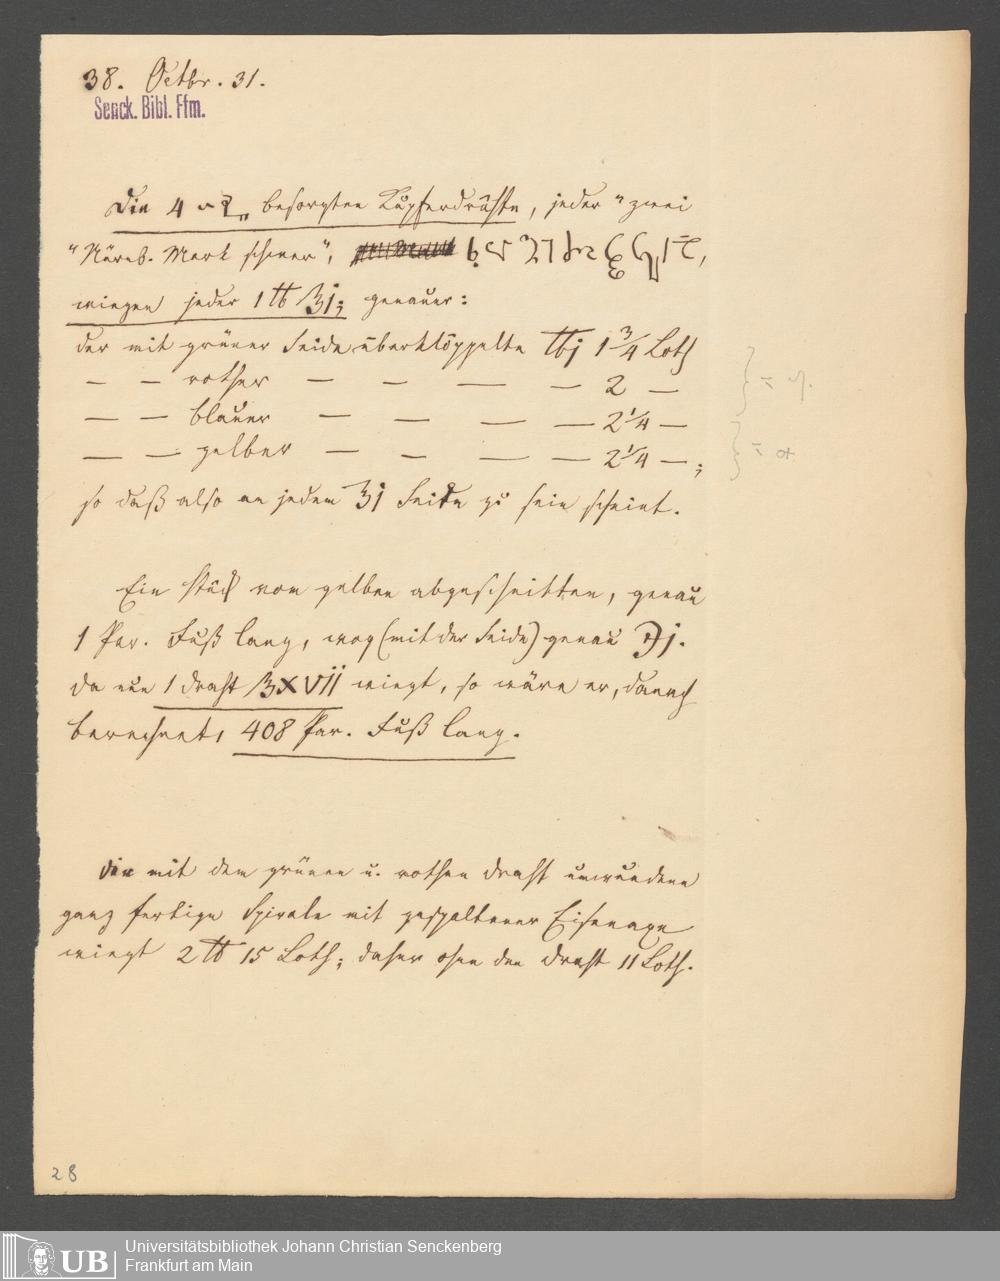 38. Octbr. 31.
Senck. Bibl. Ffm.
Die 4 besorgten Kupferdrähte, jeder "zwei
"Nürnb. Mark schwer",
wiegen jeder 1 ℔ ℥j; genauer:
der mit grüner Seide überklöppelte ℔j 1 3/4 Loth
— — rother — — — — 2 —
— — blauer — — — — 2 1/4 —
— — gelber — — — — 2 1/4 —;
so daß also an jedem ℥j Seide zu sein scheint.
Ein Stück vom gelben abgeschnitten, genau
1 Par. Fuß lang, wog (mit der Seide) genau ℈j.
da nun 1 Draht ℥XVII wiegt, so wäre er, danach
berechnet, 408 Par. Fuß lang.
Die mit dem grünen u. rothen Draht umwundene
ganz fertige Spirale mit gespaltener Eisenaxe
wiegt 2 ℔ 15 Loth; daher ohne den Draht 11 Loth.
28
UB
Universitätsbibliothek Johann Christian Senckenberg
Frankfurt am Main